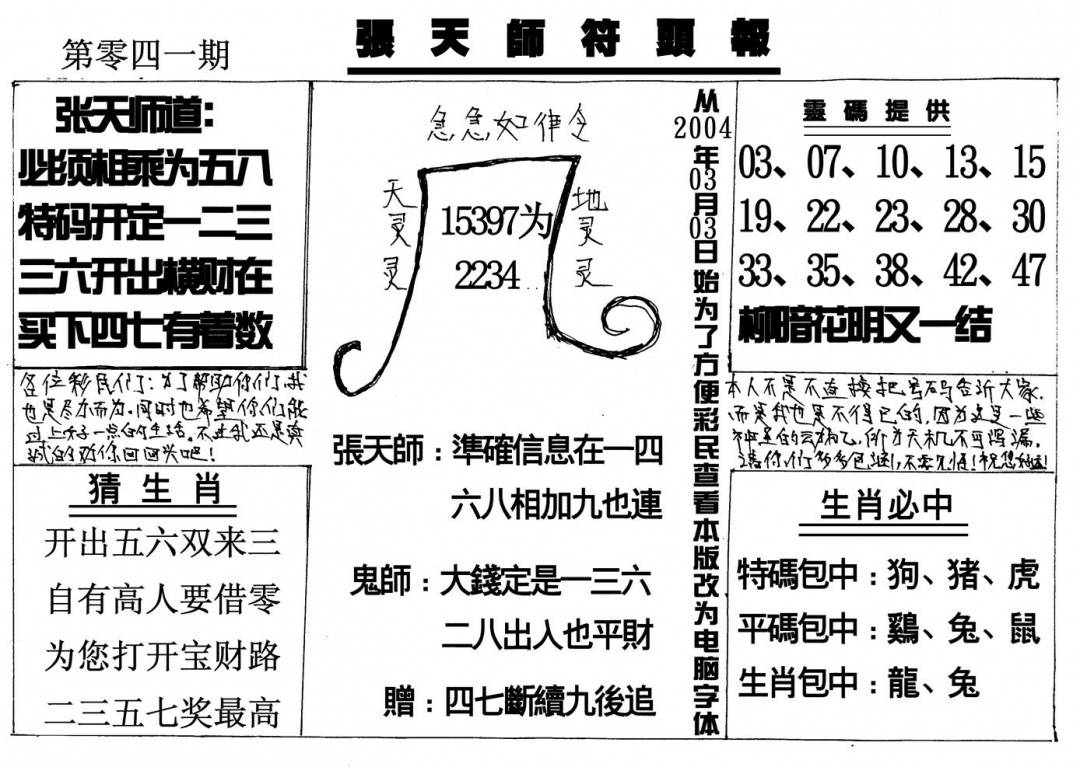 第零四一期
張天師符頭報
张天师道：
必须相乘为五八
特码开定一二三
三六开出横财在
买下四七有着数
各位彩民们：为了帮助你们，我
也是尽力而为。同时也希望你们能
过上好一点的生活。不过我还是真
诚的劝你回回头吧！
猜生肖
开出五六双来三
自有高人要借零
为您打开宝财路
二三五七奖最高
急急如律令
天灵灵
地灵灵
15397为
2234
張天師：準確信息在一四
六八相加九也連
鬼師：大錢定是一三六
二八出入也平財
贈：四七斷續九後追
从2004年03月03日始为了方便彩民查看本版改为电脑字体
靈碼提供
03、07、10、13、15
19、22、23、28、30
33、35、38、42、47
柳暗花明又一结
本人不是不直接把号码告诉大家，
而是我也是不得已的，因为这是一些
神圣的玄机，天机不可泻漏。
请你们多多包涵，不要见怪！祝您
生肖必中
特碼包中：狗、猪、虎
平碼包中：鷄、兔、鼠
生肖包中：龍、兔